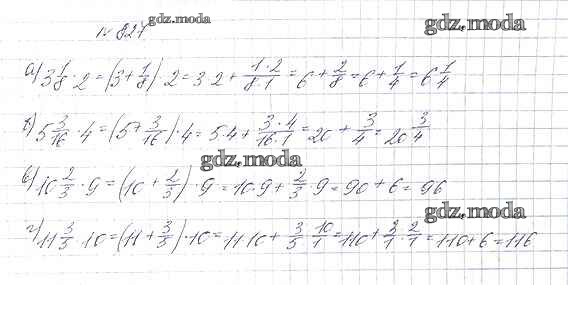 № 827
gdz.moda
gdz.moda
а) 3 1/8 · 2 = (3 + 1/8) · 2 = 3 · 2 + (1 · 2)/(8 · 1) = 6 + 2/8 = 6 + 1/4 = 6 1/4
б) 5 3/16 · 4 = (5 + 3/16) · 4 = 5 · 4 + (3 · 4)/(16 · 1) = 20 + 3/4 = 20 3/4
gdz.moda
в) 10 2/3 · 9 = (10 + 2/3) · 9 = 10 · 9 + 2/3 · 9 = 90 + 6 = 96
gdz.moda
г) 11 3/5 · 10 = (11 + 3/5) · 10 = 11 · 10 + 3/5 · 10/1 = 110 + 3/1 · 2/1 = 110 + 6 = 116